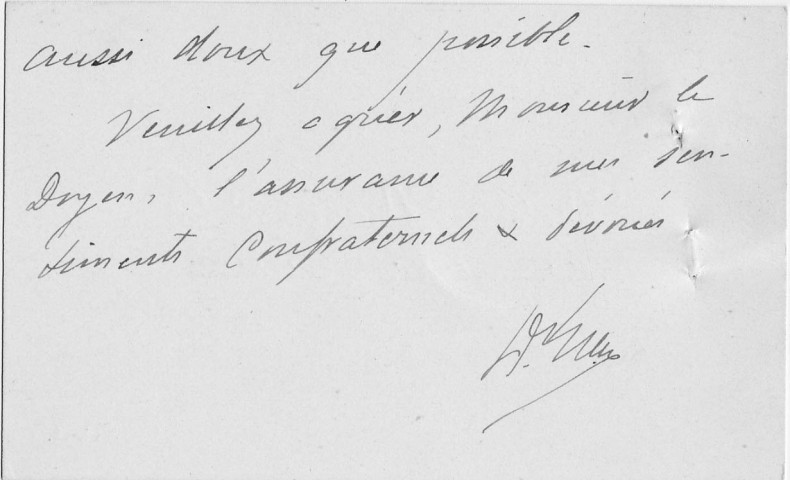 aussi doux que possible.
Veuillez agréer, Monsieur le
Doyen, l'assurance de mes sen-
timents confraternels & dévoués